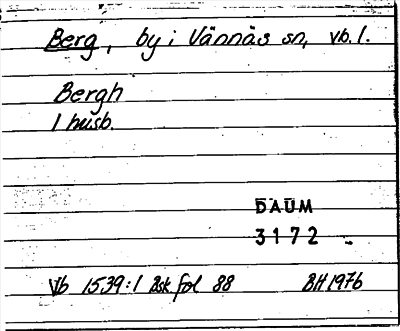 Berg, by i Vännäs sn, vb. l.
Bergh
1 husb.
DAUM
3172
Vb 1539:1 Bsk fol 88 BH 1976